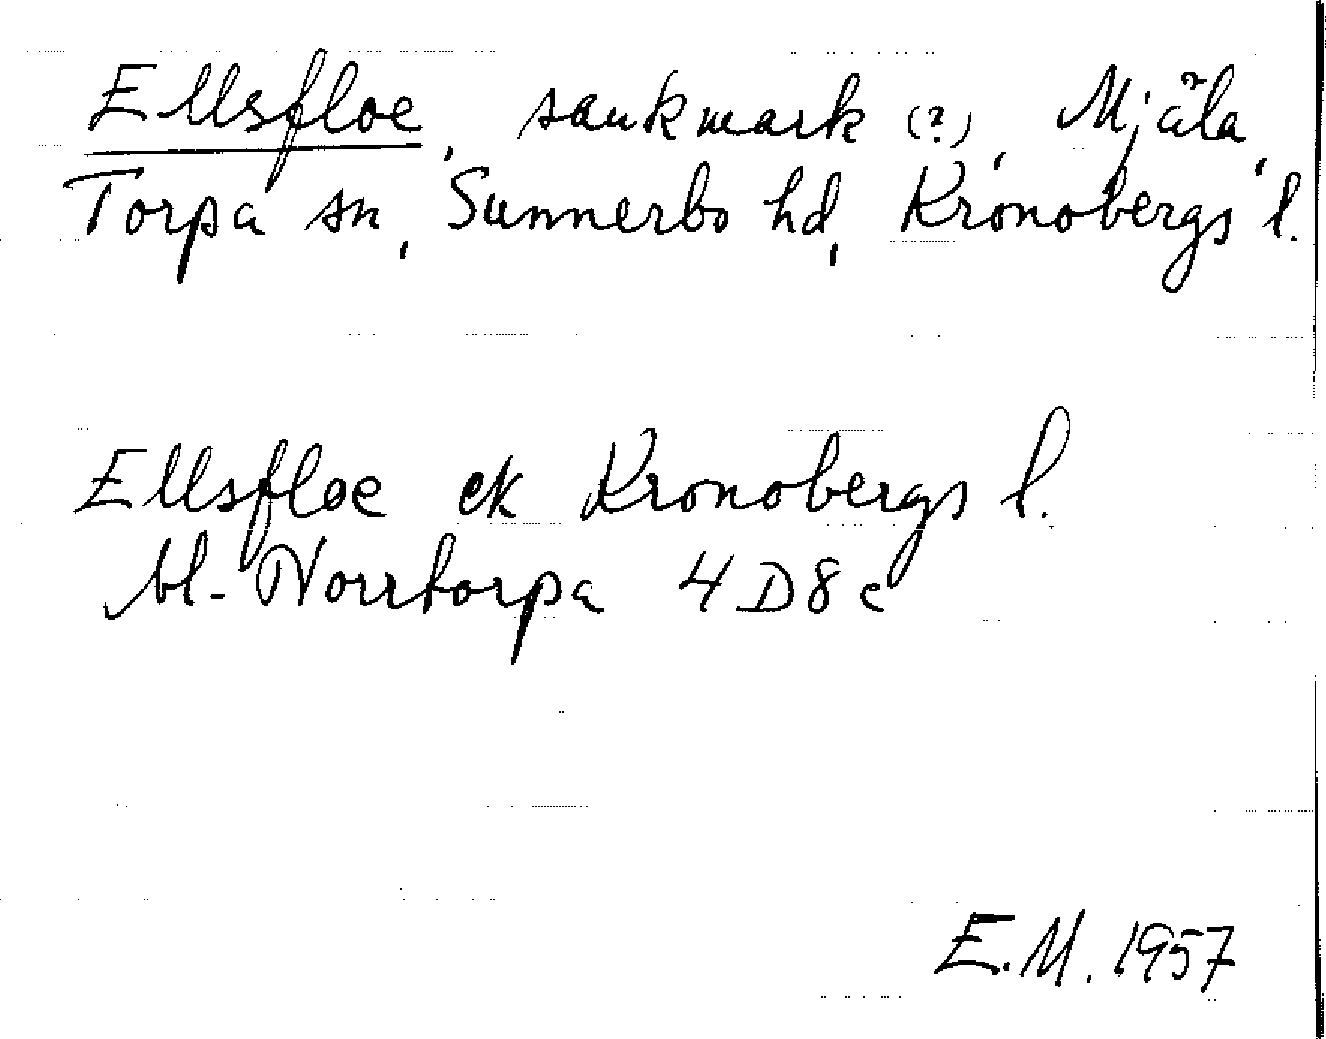 Ellsfloe, sankmark (?), Mjäla,
Torpa sn, Sunnerbo hd, Kronobergs l.
Ellsfloe ek Kronobergs l.
bl. Norrtorpa 4D8c
E.M. 1957